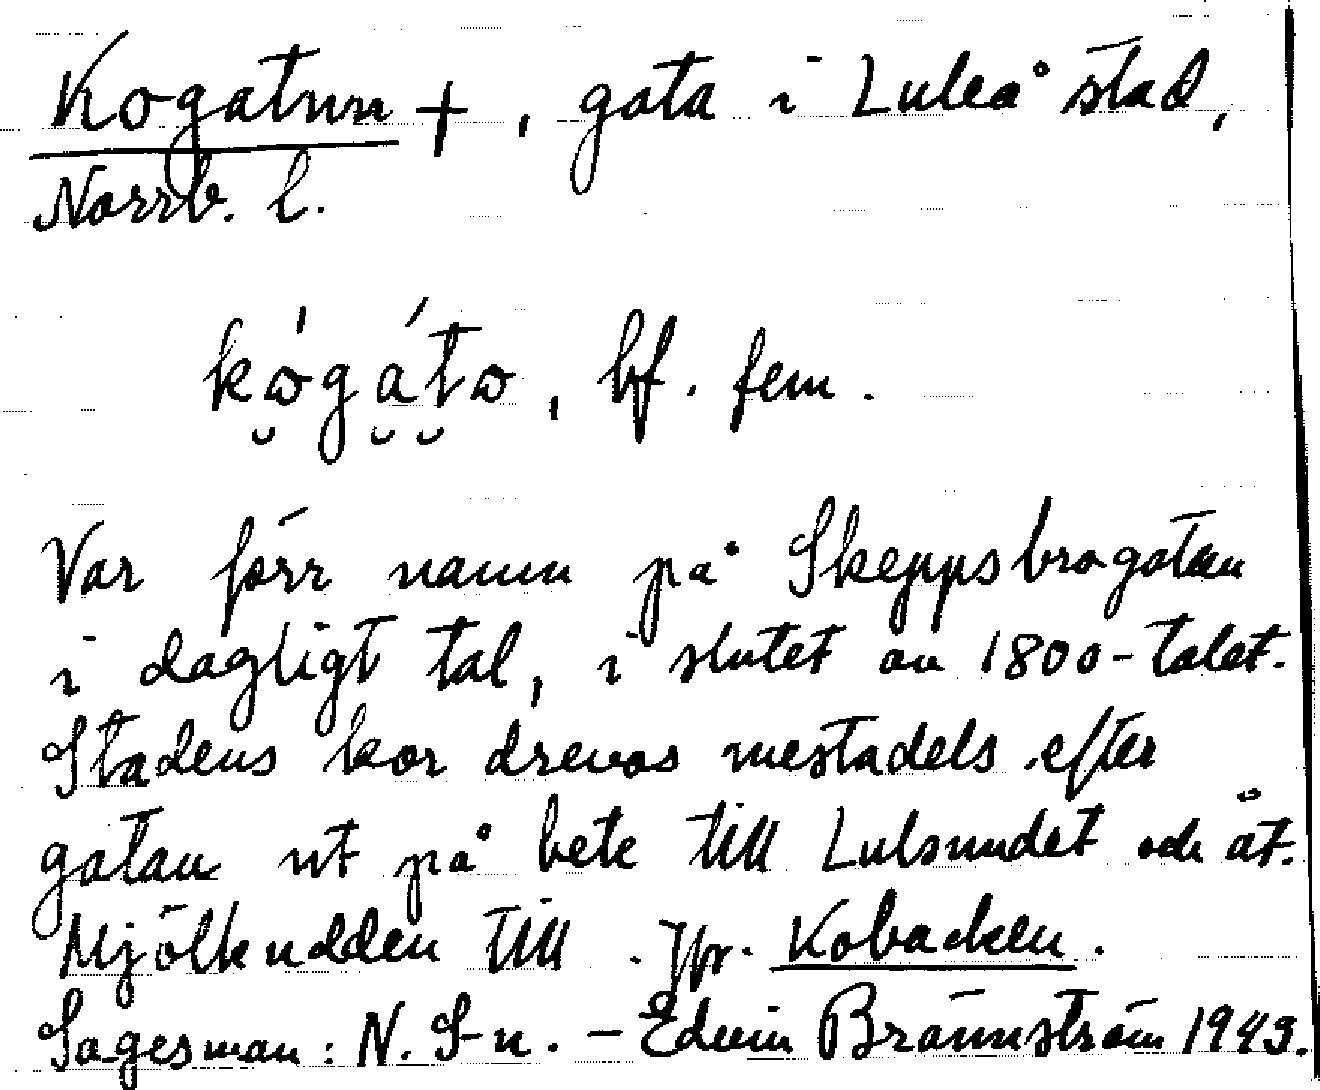 Kogatan +, gata i Luleå stad,
Norrb. l.
kǿgáto, bf. fem.
Var förr namn på Skeppsbrogatan
i dagligt tal, i slutet av 1800-talet.
Stadens kor drevos mestadels efter
gatan ut på bete till Lulsundet och åt
Mjölkudden till. Jfr. Kobacken.
Sagesman: N. S-n. - Edvin Brännström 1943.